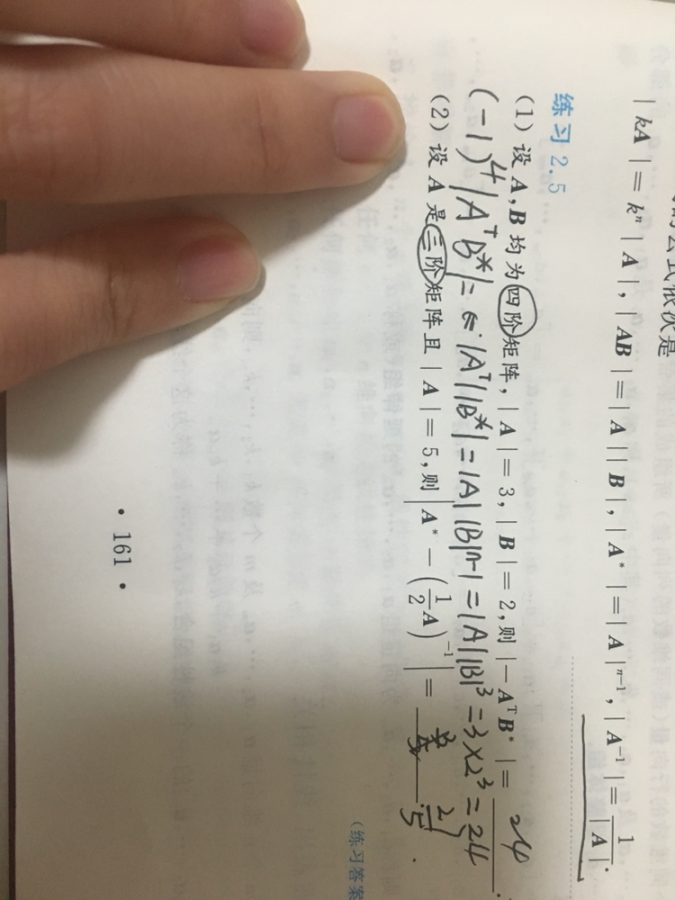 的公式依次是
| kA | = kⁿ | A |, | AB | = | A | | B |, | A* | = | A |ⁿ⁻¹, | A⁻¹ | = 1/| A |.
练习 2.5
(1) 设 A,B 均为四阶矩阵, | A | = 3, | B | = 2, 则 | −AᵀB* | = 24 .
(-1)⁴|AᵀB*| = |Aᵀ||B*| = |A||B|ⁿ⁻¹ = |A||B|³ = 3×2³ = 24
(2) 设 A 是三阶矩阵且 | A | = 5, 则 | A* − (1/2 A)⁻¹ | =
(练习答案
· 161 ·